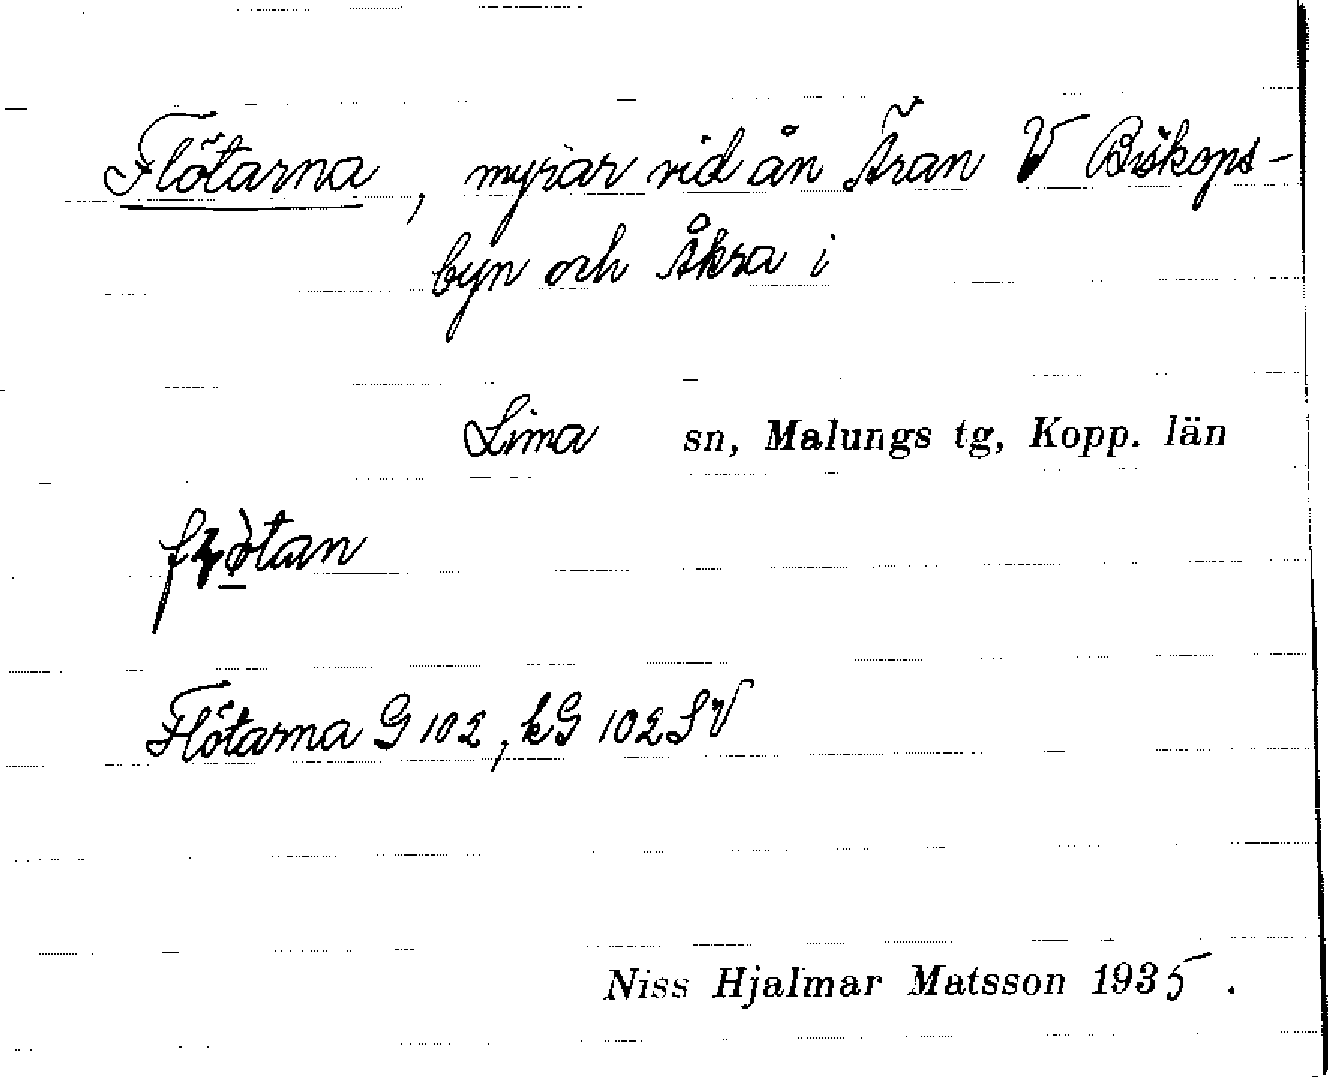 Flötarna, myrar vid ån Äran V Biskops-
byn och Åkra i
Lima sn, Malungs tg, Kopp. län
Flötarna G 102, kG 102 SV
Niss Hjalmar Matsson 1935.